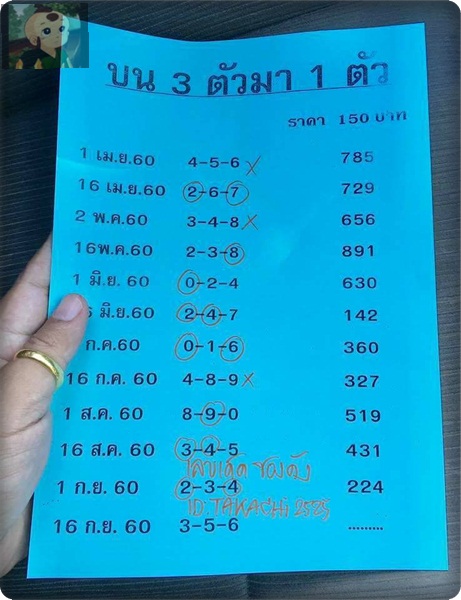 บน 3 ตัวมา 1 ตัว
ราคา 150 บาท
1 เม.ย.60 4-5-6 X 785
16 เม.ย.60 2-6-7 729
2 พ.ค.60 3-4-8 X 656
16พ.ค.60 2-3-8 891
1 มิ.ย. 60 0-2-4 630
6 มิ.ย.60 2-4-7 142
ก.ค.60 0-1-6 360
16 ก.ค. 60 4-8-9 X 327
1 ส.ค. 60 8-9-0 519
16 ส.ค. 60 3-4-5 431
เลขเด็ด ของดัง
1 ก.ย. 60 2-3-4 224
ID: TAKACHi 2525
16 ก.ย. 60 3-5-6 .........